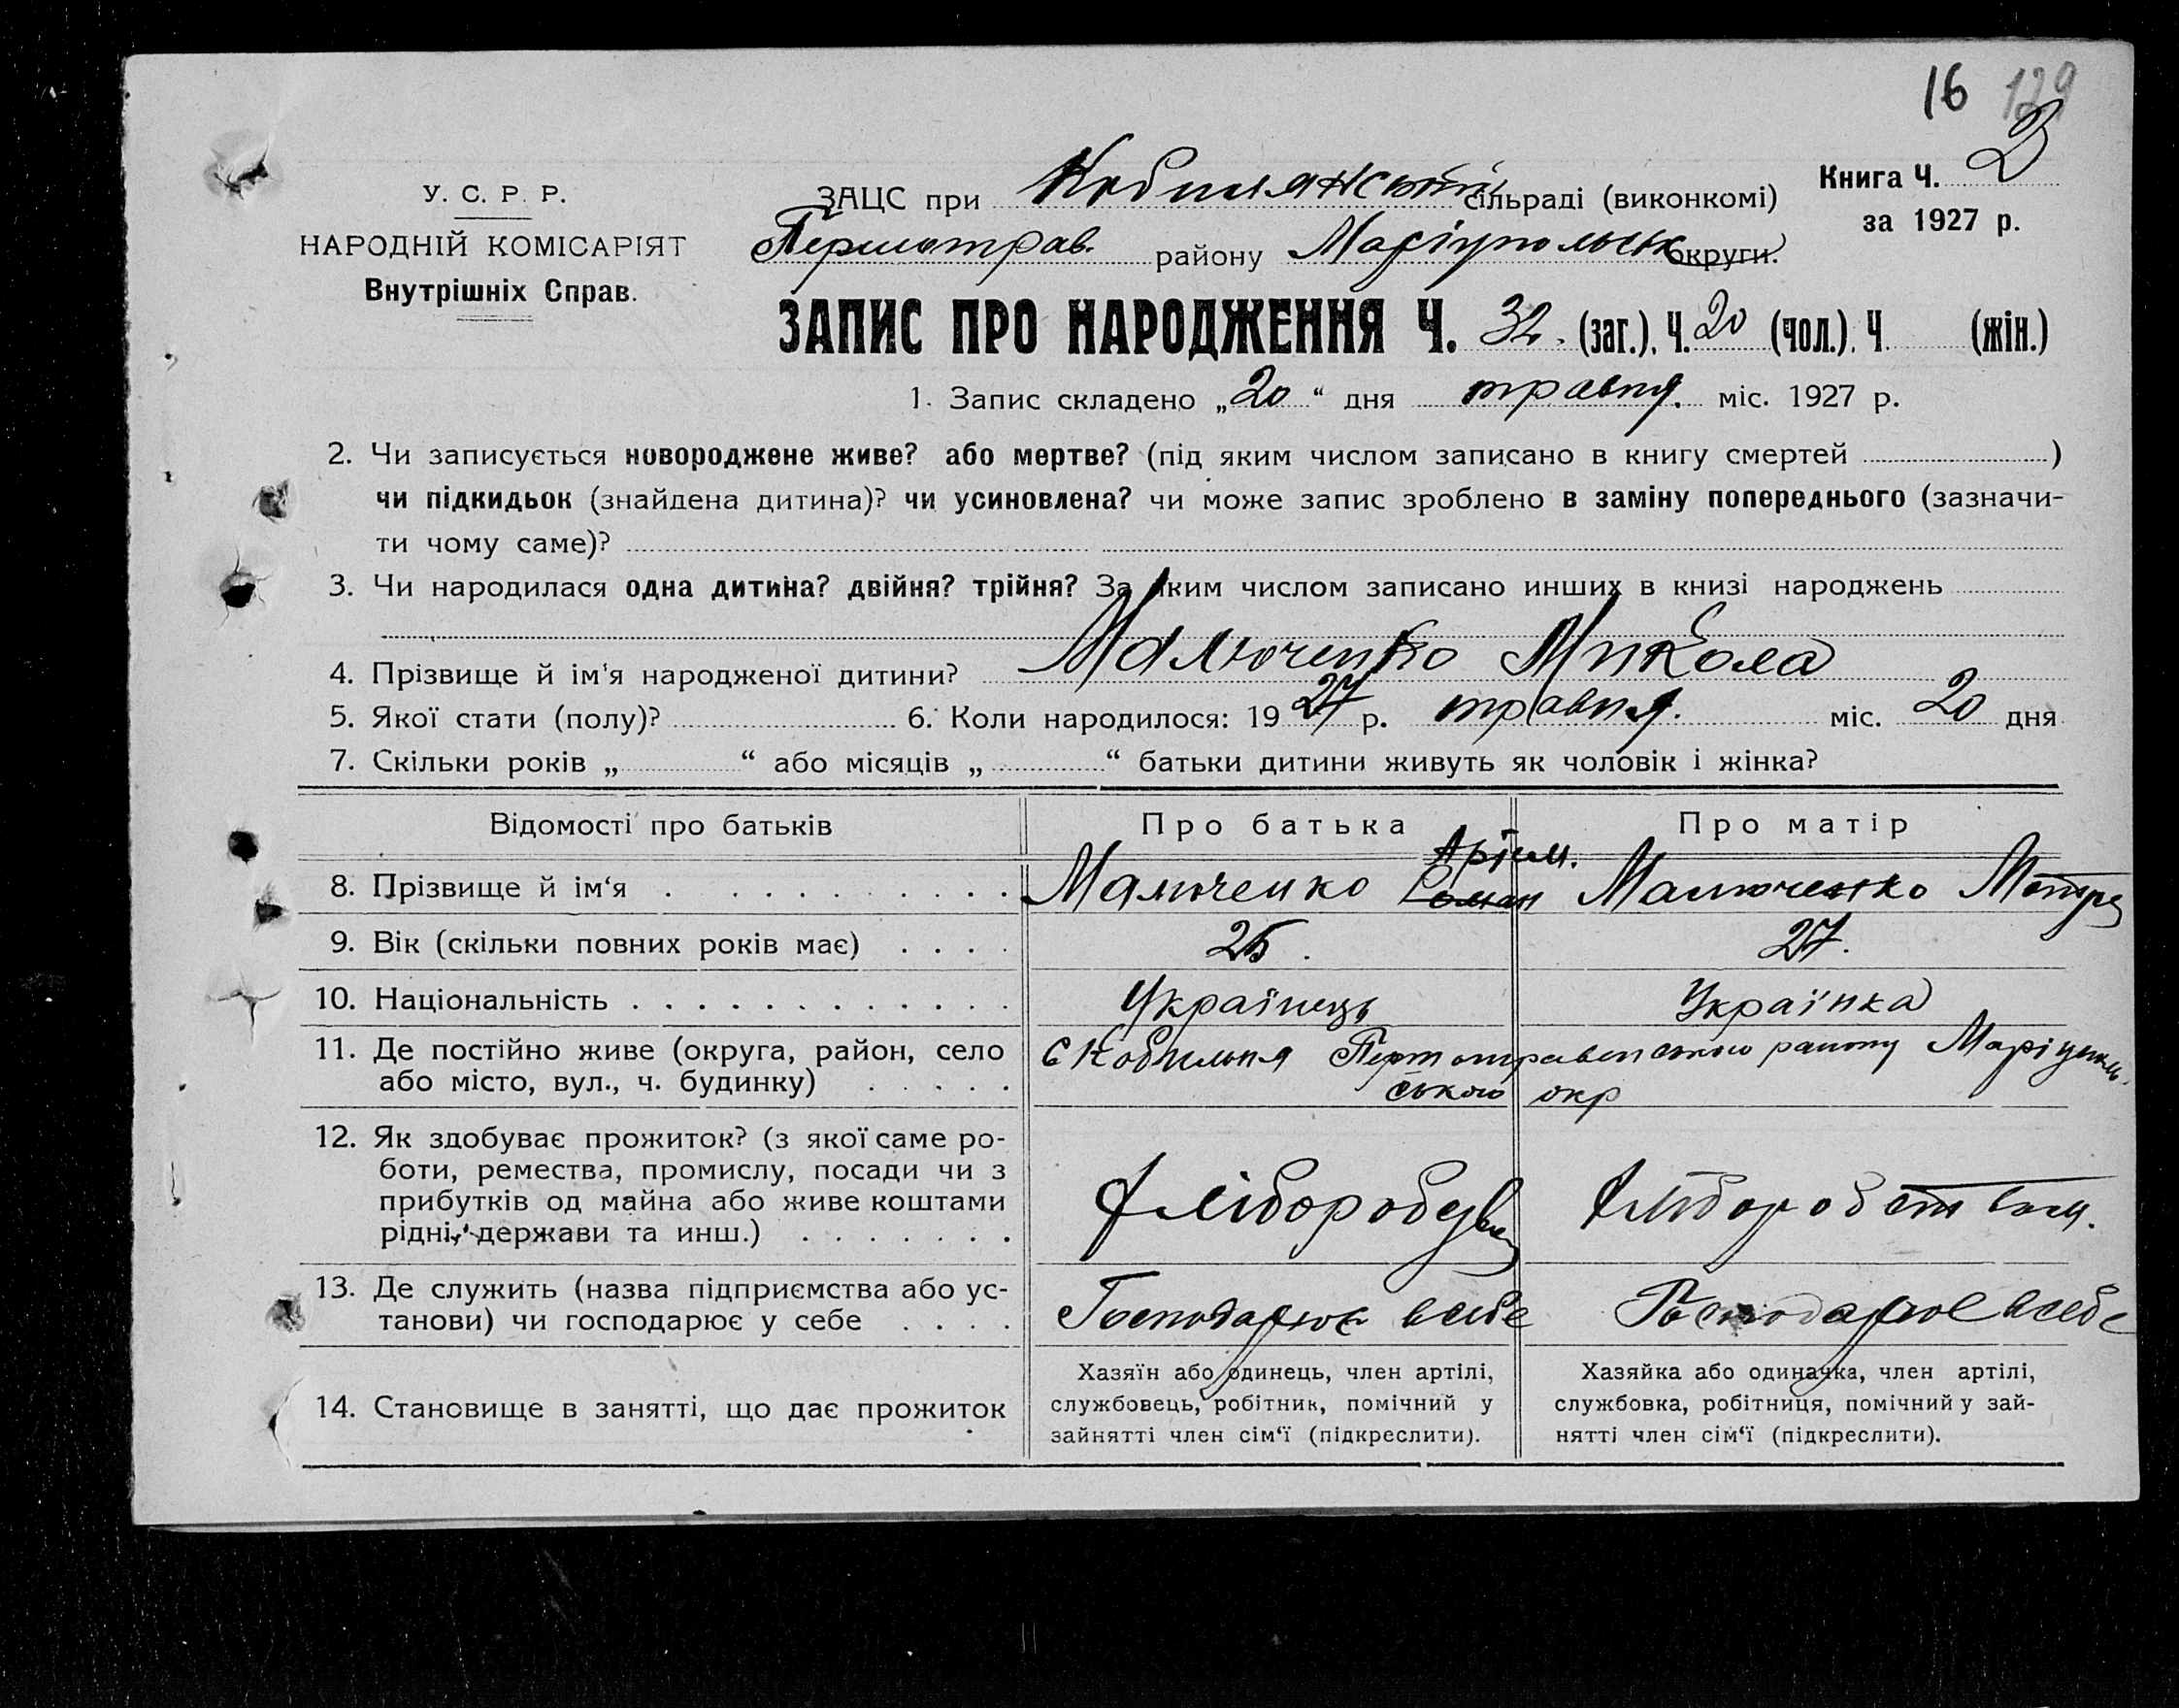 16 129
У. С. Р. Р.
НАРОДНІЙ КОМІСАРІЯТ
Внутрішніх Справ.
ЗАЦС при сільраді (виконкомі)
Першотрав. району Маріупольськ округи.
Книга Ч.
за 1927 р.
ЗАПИС ПРО НАРОДЖЕННЯ Ч. 32. (заг.). Ч. 20 (чол.). Ч. (жін.)
1. Запис складено „20“ дня травня. міс. 1927 р.
2. Чи записується новороджене живе? або мертве? (під яким числом записано в книгу смертей )
чи підкидьок (знайдена дитина)? чи усиновлена? чи може запис зроблено в заміну попереднього (зазначи-
ти чому саме)?
3. Чи народилася одна дитина? двійня? трійня? За яким числом записано инших в книзі народжень
4. Прізвище й ім'я народженої дитини? Малюченко Микола
5. Якої стати (полу)? 6. Коли народилося: 19 27 р. травня. міс. 20 дня
7. Скільки років „ “ або місяців „ “ батьки дитини живуть як чоловік і жінка?
Відомості про батьків Про батька Про матір
8. Прізвище й ім‘я Малюченко Роман Малюченко
9. Вік (скільки повних років має) 25. 27.
10. Національність Українець Українка
11. Де постійно живе (округа, район, село
або місто, вул., ч. будинку)
с Кобильня Першотравенського району Маріуполь-
ського окр
12. Як здобуває прожиток? (з якої саме ро-
боти, ремества, промислу, посади чи з
прибутків од майна або живе коштами
рідні, держави та инш.)
Хліборобством.
13. Де служить (назва підприємства або ус-
танови) чи господарює у себе
Господарює в себе Господарює в себе
14. Становище в занятті, що дає прожиток
Хазяїн або одинець, член артілі,
службовець, робітник, помічний у
зайнятті член сім‘ї (підкреслити).
Хазяйка або одиначка, член артілі,
службовка, робітниця, помічний у зай-
нятті член сім‘ї (підкреслити).